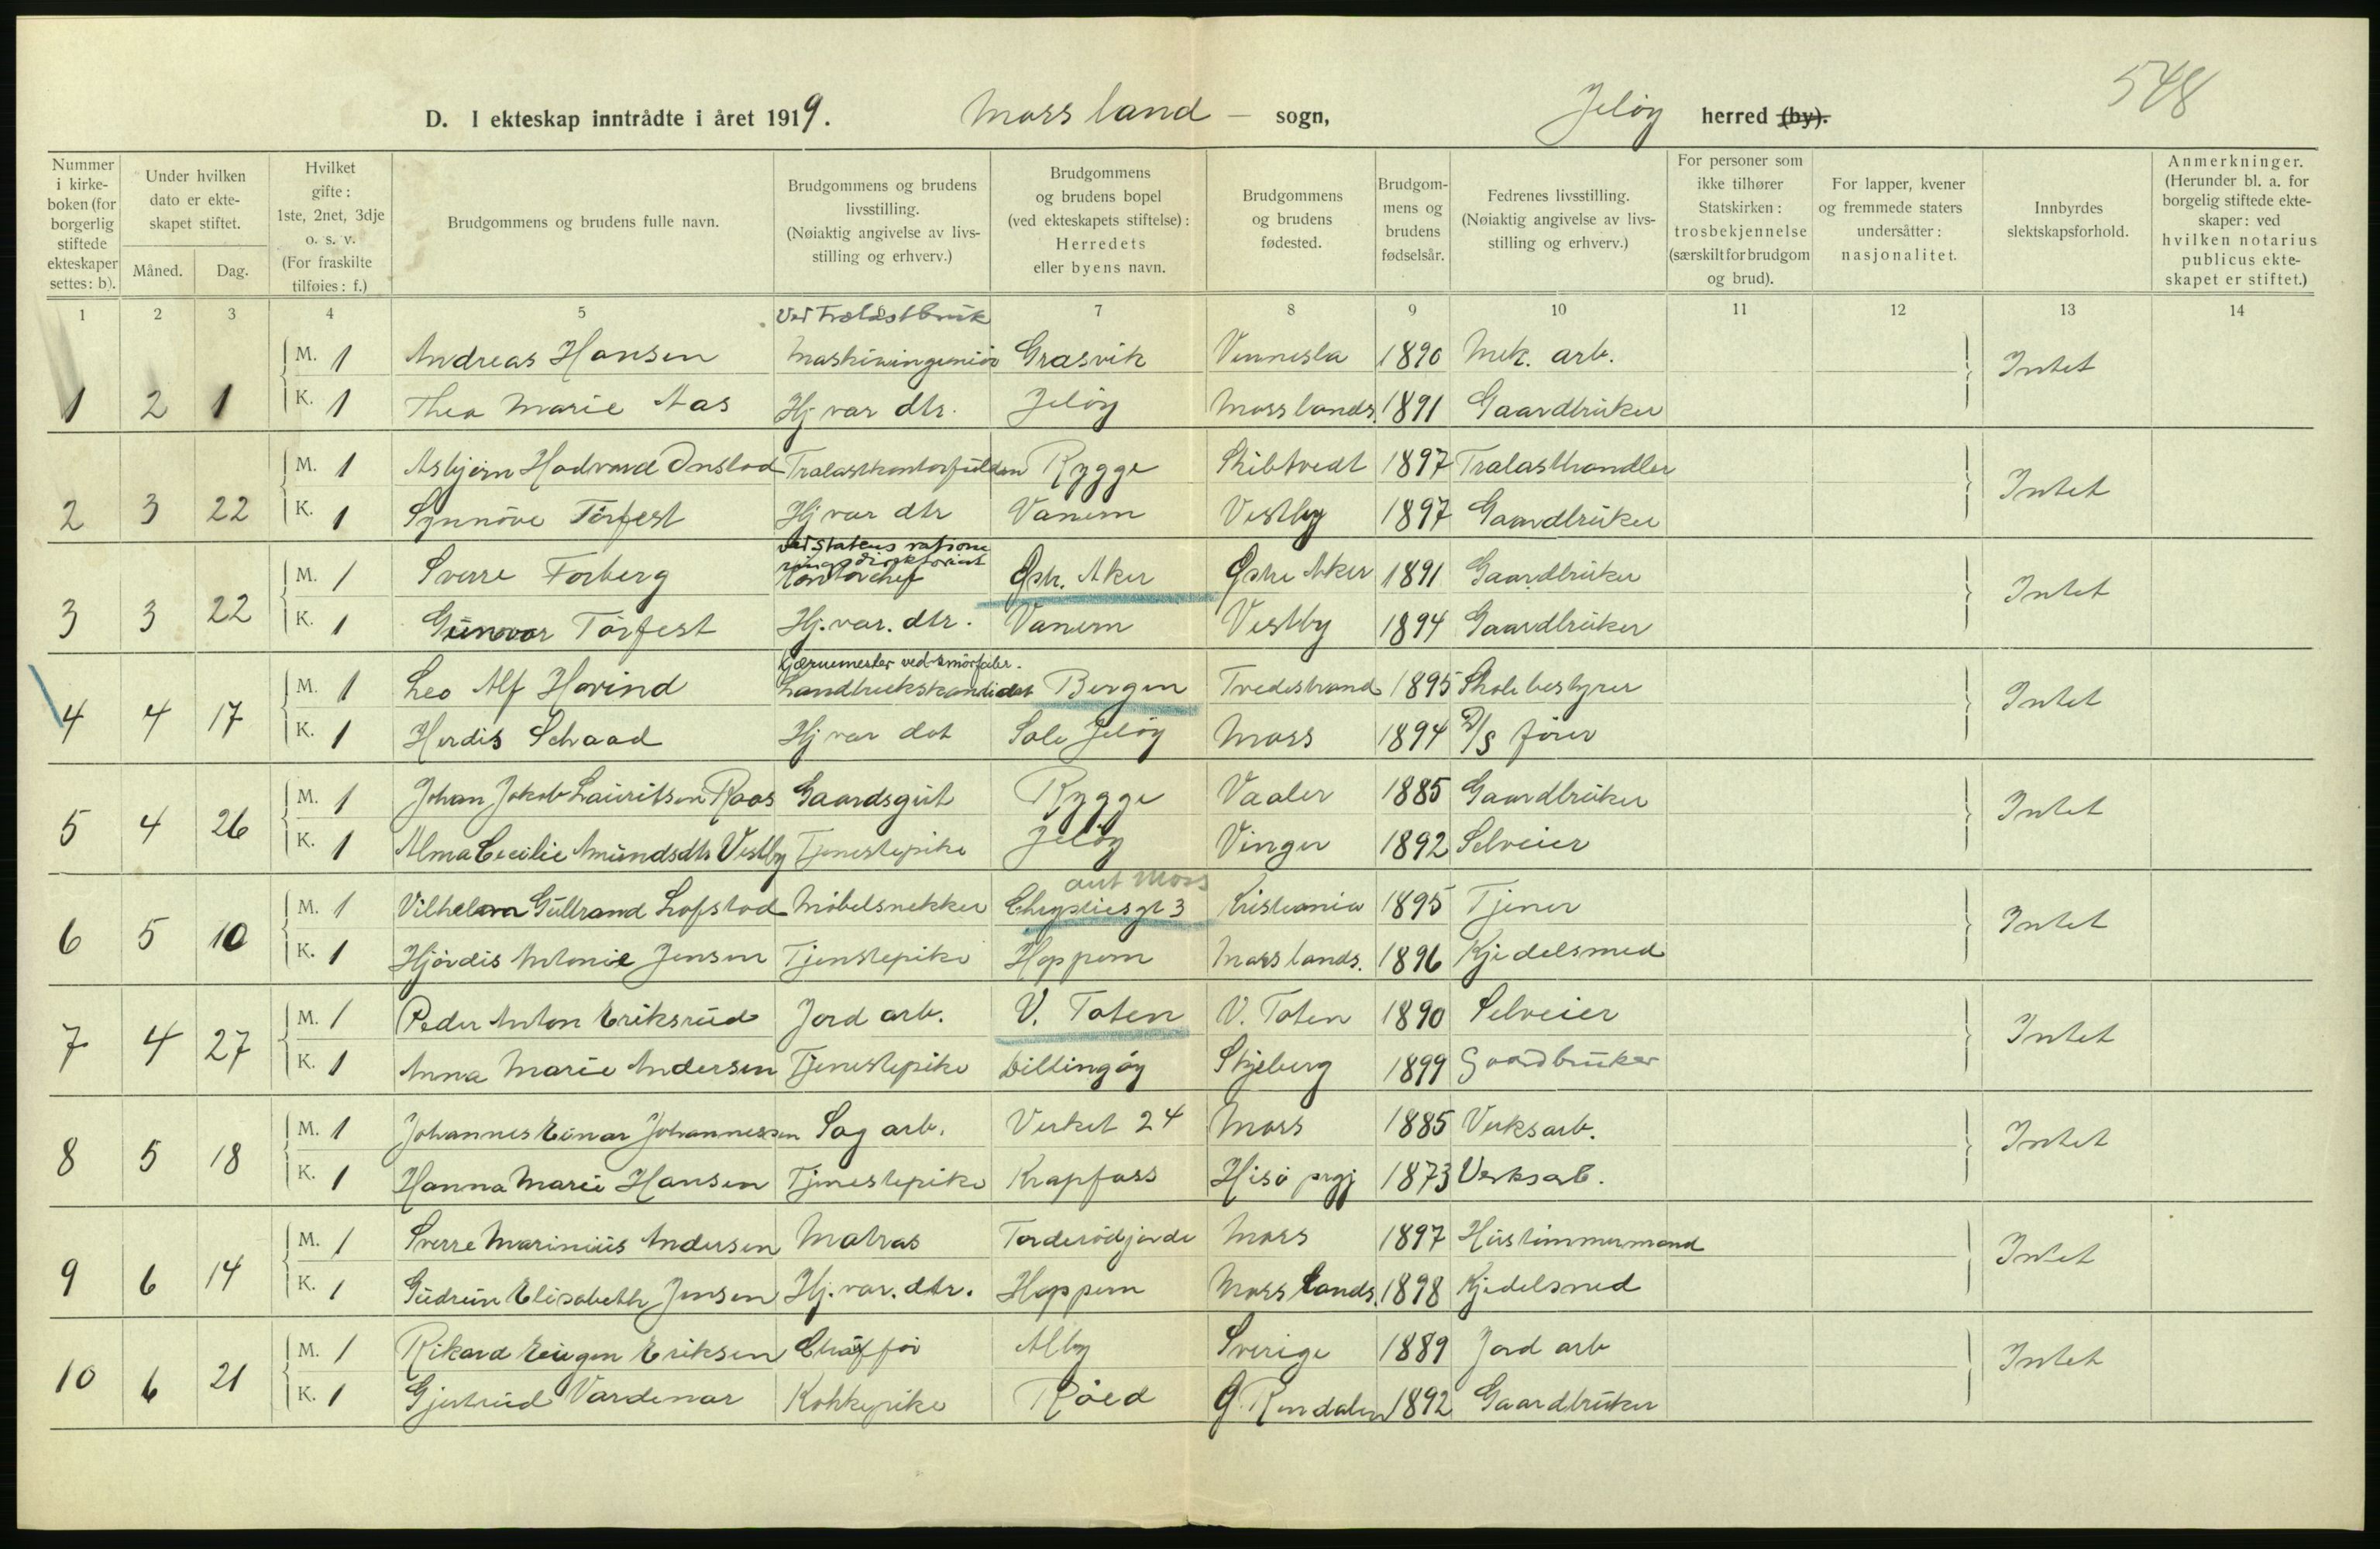 548
D. I ekteskap inntrådte i året 1919. Moss land – sogn, Jeløy herred (by).
Nummer i kirke-boken (for borgerlig stiftede ekteskaper settes: b).
Under hvilken dato er ekte-skapet stiftet.
Måned. Dag.
Hvilket gifte: 1ste, 2net, 3dje o. s. v. (For fraskilte tilføies: f.)
Brudgommens og brudens fulle navn.
Brudgommens og brudens livsstilling. (Nøiaktig angivelse av livs-stilling og erhverv.)
Brudgommens og brudens bopel (ved ekteskapets stiftelse): Herredets eller byens navn.
Brudgommens og brudens fødested.
Brudgom-mens og brudens fødselsår.
Fedrenes livsstilling. (Nøiaktig angivelse av livs-stilling og erhverv.)
For personer som ikke tilhører Statskirken: trosbekjennelse (særskilt for brudgom og brud).
For lapper, kvener og fremmede staters undersåtter: nasjonalitet.
Innbyrdes slektskapsforhold.
Anmerkninger. (Herunder bl. a. for borgelig stiftede ekte-skaper: ved hvilken notarius publicus ekte-skapet er stiftet.)
1 2 3 4 5 7 8 9 10 11 12 13 14
Ved Trælastbruk
M. 1 Andreas Hansen Maskiningeniör Græsvik Vennesla 1890 Mek. arb.
1 2 1 K. 1 Thea Marie Aas Hj var dtr. Jeløy Moss lands. 1891 Gaardbruker Intet
M. 1 Asbjørn Hadvard Onstad Trælastkontorfuldm Rygge Skibtvedt 1897 Trælasthandler
2 3 22 K. 1 Synnöve Törfest Hj var dtr Vanem Vestby 1897 Gaardbruker Intet
ved statens rasjone
ringsdirektorat
M. 1 Sverre Forberg Kontorchef Østr. Aker Østre Aker 1891 Gaardbruker
3 3 22 K. 1 Gunvor Törfest Hj. var. dtr. Vanem Vestby 1894 Gaardbruker Intet
Kjærnemester ved smörfabr.
M. 1 Leo Alf Hovind Landbrukskandidat Bergen Tvedestrand 1895 Skolebestyrer
4 4 17 K. 1 Herdis Schaad Hj var dat Sole Jeløy Moss 1894 D/S fører Intet
M. 1 Johan Jakob Lauritsen Roos Gaardsgut Rygge Vaaler 1885 Gaardbruker
5 4 26 K. 1 Alma Cecilie Amundsdtr Vestby Tjenestepike Jeløy Vinger 1892 Selveier Intet
ant Moss
M. 1 Vilhelm Gulbrand Lofstad Möbelsnekker Chrystiesgt 3 Kristiania 1895 Tjener
6 5 10 K. 1 Hjördis Antonie Jensen Tjenstepike Hoppern Moss lands. 1896 Kjedelsmed Intet
M. 1 Peder Anton Eriksrud Jord arb. V. Toten V. Toten 1890 Selveier
7 4 27 K. 1 Anna Marie Andersen Tjenestepike Dillingøy Skjeberg 1899 Gaardbruker Intet
M. 1 Johannes Einar Johannessen Sag arb. Verket 24 Moss 1885 Verksarb.
8 5 18 K. 1 Hanna Marie Hansen Tjenestepike Krapfoss Hisö prgj 1873 Verksarb. Intet
M. 1 Sverre Marinius Andersen Matros Torderödjorde Moss 1897 Hustimmermand
9 6 14 K. 1 Gudrun Elisabeth Jensen Hj. var. dtr. Hoppern Moss Lands. 1898 Kjedelsmed Intet
M. 1 Rikard Eugen Eriksen Chafför Alby Sverige 1889 Jord arb
10 6 21 K. 1 Gjertrud Vardenar Kokkepike Röed Ø Rendalen 1892 Gaardbruker Intet